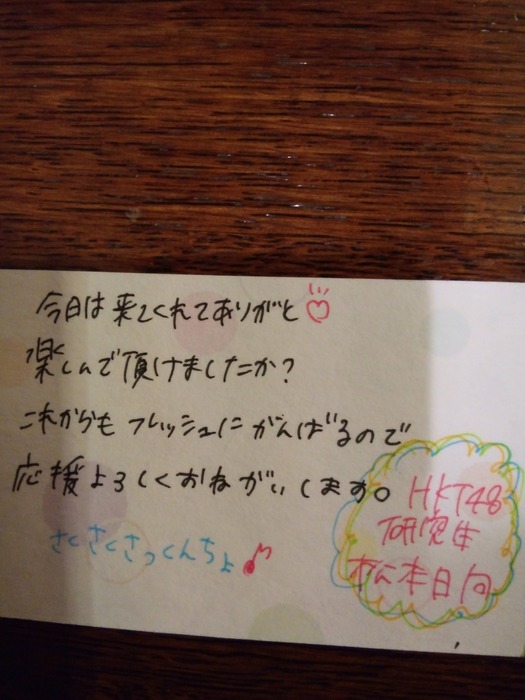 今日は来てくれてありがと
楽しんで頂けましたか?
これからもフレッシュにがんばるので
応援よろしくおねがいします。
さくさくさっくんちょ♪
HKT48
研究生
松本日向